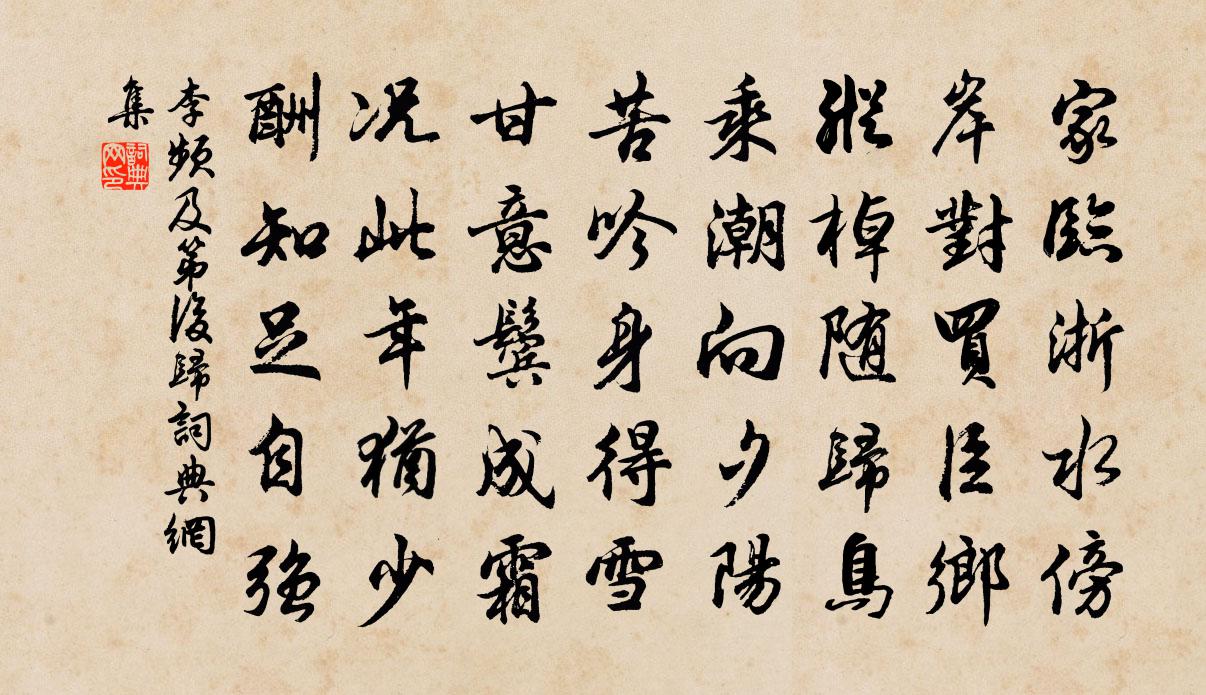 家臨浙水傍
岸對買臣鄉
縱棹随歸鳥
乘潮向夕陽
苦吟身得雪
甘意鬓成霜
况此年猶少
酬知足自強
李頻及第後歸詞典網
集
詞典网印